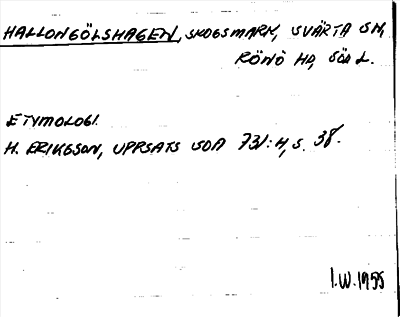 HALLONGÖLSHAGEN, SKOGSMARK, SVÄRTA SN,
RÖNÖ HD, SÖD L.
ETYMOLOGI.
H. ERIKSSON, UPPSATS SOA 731:H, S. 38.
I.W. 1955